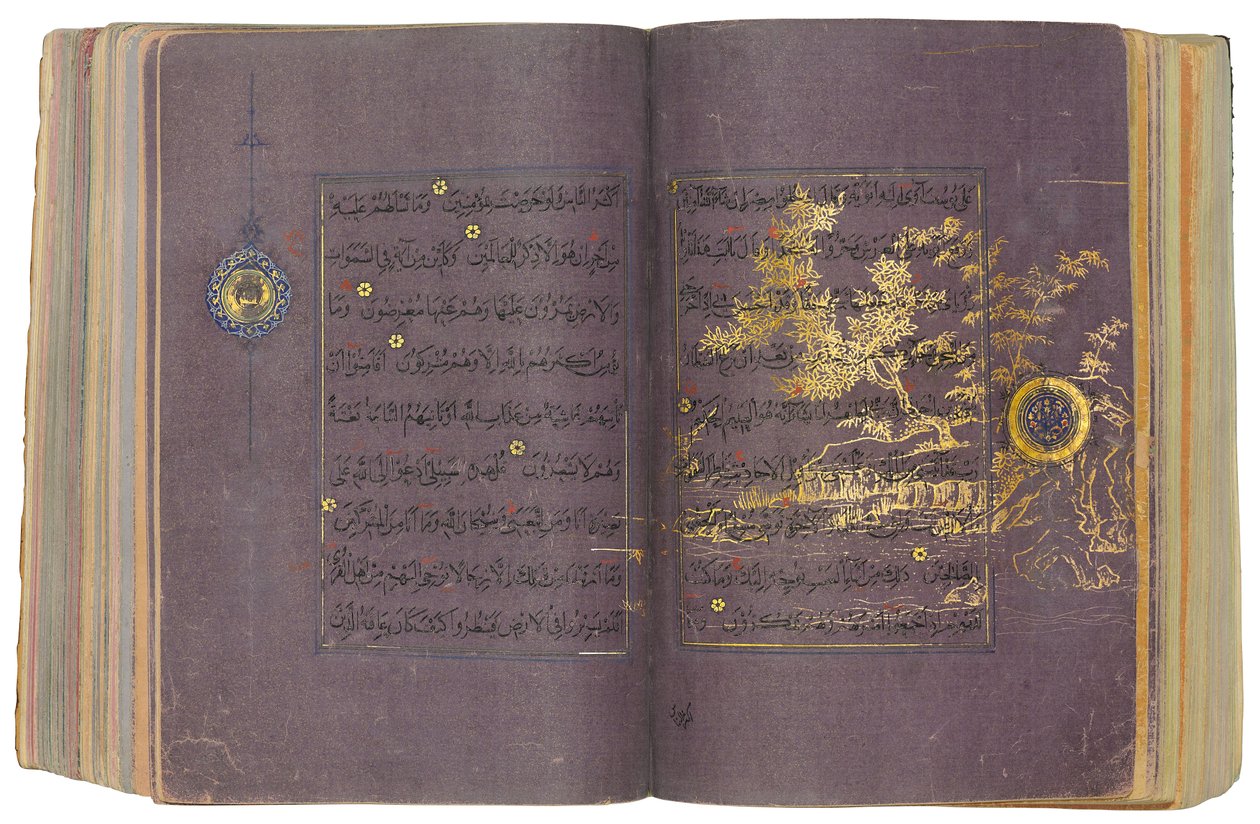 عَلَى يُوسُفَ آوَى إِلَيْهِ أَبَوَيْهِ وَقَالَ ادْخُلُوا مِصْرَ إِنْ شَاءَ اللَّهُ آمِنِينَ
وَرَفَعَ أَبَوَيْهِ عَلَى الْعَرْشِ وَخَرُّوا لَهُ سُجَّدًا وَقَالَ يَا أَبَتِ هَذَا تَأْوِيلُ
رُؤْيَايَ مِنْ قَبْلُ قَدْ جَعَلَهَا رَبِّي حَقًّا وَقَدْ أَحْسَنَ بِي إِذْ أَخْرَجَنِي
مِنَ السِّجْنِ وَجَاءَ بِكُمْ مِنَ الْبَدْوِ مِنْ بَعْدِ أَنْ نَزَغَ الشَّيْطَانُ
بَيْنِي وَبَيْنَ إِخْوَتِي إِنَّ رَبِّي لَطِيفٌ لِمَا يَشَاءُ إِنَّهُ هُوَ الْعَلِيمُ الْحَكِيمُ
رَبِّ قَدْ آتَيْتَنِي مِنَ الْمُلْكِ وَعَلَّمْتَنِي مِنْ تَأْوِيلِ الْأَحَادِيثِ فَاطِرَ السَّمَوَاتِ
وَالْأَرْضِ أَنْتَ وَلِيِّي فِي الدُّنْيَا وَالْآخِرَةِ تَوَفَّنِي مُسْلِمًا وَأَلْحِقْنِي
بِالصَّالِحِينَ ذَلِكَ مِنْ أَنْبَاءِ الْغَيْبِ نُوحِيهِ إِلَيْكَ وَمَا كُنْتَ
لَدَيْهِمْ إِذْ أَجْمَعُوا أَمْرَهُمْ وَهُمْ يَمْكُرُونَ وَمَا
اكثر الناس
أَكْثَرُ النَّاسِ وَلَوْ حَرَصْتَ بِمُؤْمِنِينَ وَمَا تَسْأَلُهُمْ عَلَيْهِ
مِنْ أَجْرٍ إِنْ هُوَ إِلَّا ذِكْرٌ لِلْعَالَمِينَ وَكَأَيِّنْ مِنْ آيَةٍ فِي السَّمَوَاتِ
وَالْأَرْضِ يَمُرُّونَ عَلَيْهَا وَهُمْ عَنْهَا مُعْرِضُونَ وَمَا
يُؤْمِنُ أَكْثَرُهُمْ بِاللَّهِ إِلَّا وَهُمْ مُشْرِكُونَ أَفَأَمِنُوا أَنْ
تَأْتِيَهُمْ غَاشِيَةٌ مِنْ عَذَابِ اللَّهِ أَوْ تَأْتِيَهُمُ السَّاعَةُ بَغْتَةً
وَهُمْ لَا يَشْعُرُونَ قُلْ هَذِهِ سَبِيلِي أَدْعُو إِلَى اللَّهِ عَلَى
بَصِيرَةٍ أَنَا وَمَنِ اتَّبَعَنِي وَسُبْحَانَ اللَّهِ وَمَا أَنَا مِنَ الْمُشْرِكِينَ
وَمَا أَرْسَلْنَا مِنْ قَبْلِكَ إِلَّا رِجَالًا نُوحِي إِلَيْهِمْ مِنْ أَهْلِ الْقُرَى
أَفَلَمْ يَسِيرُوا فِي الْأَرْضِ فَيَنْظُرُوا كَيْفَ كَانَ عَاقِبَةُ الَّذِينَ